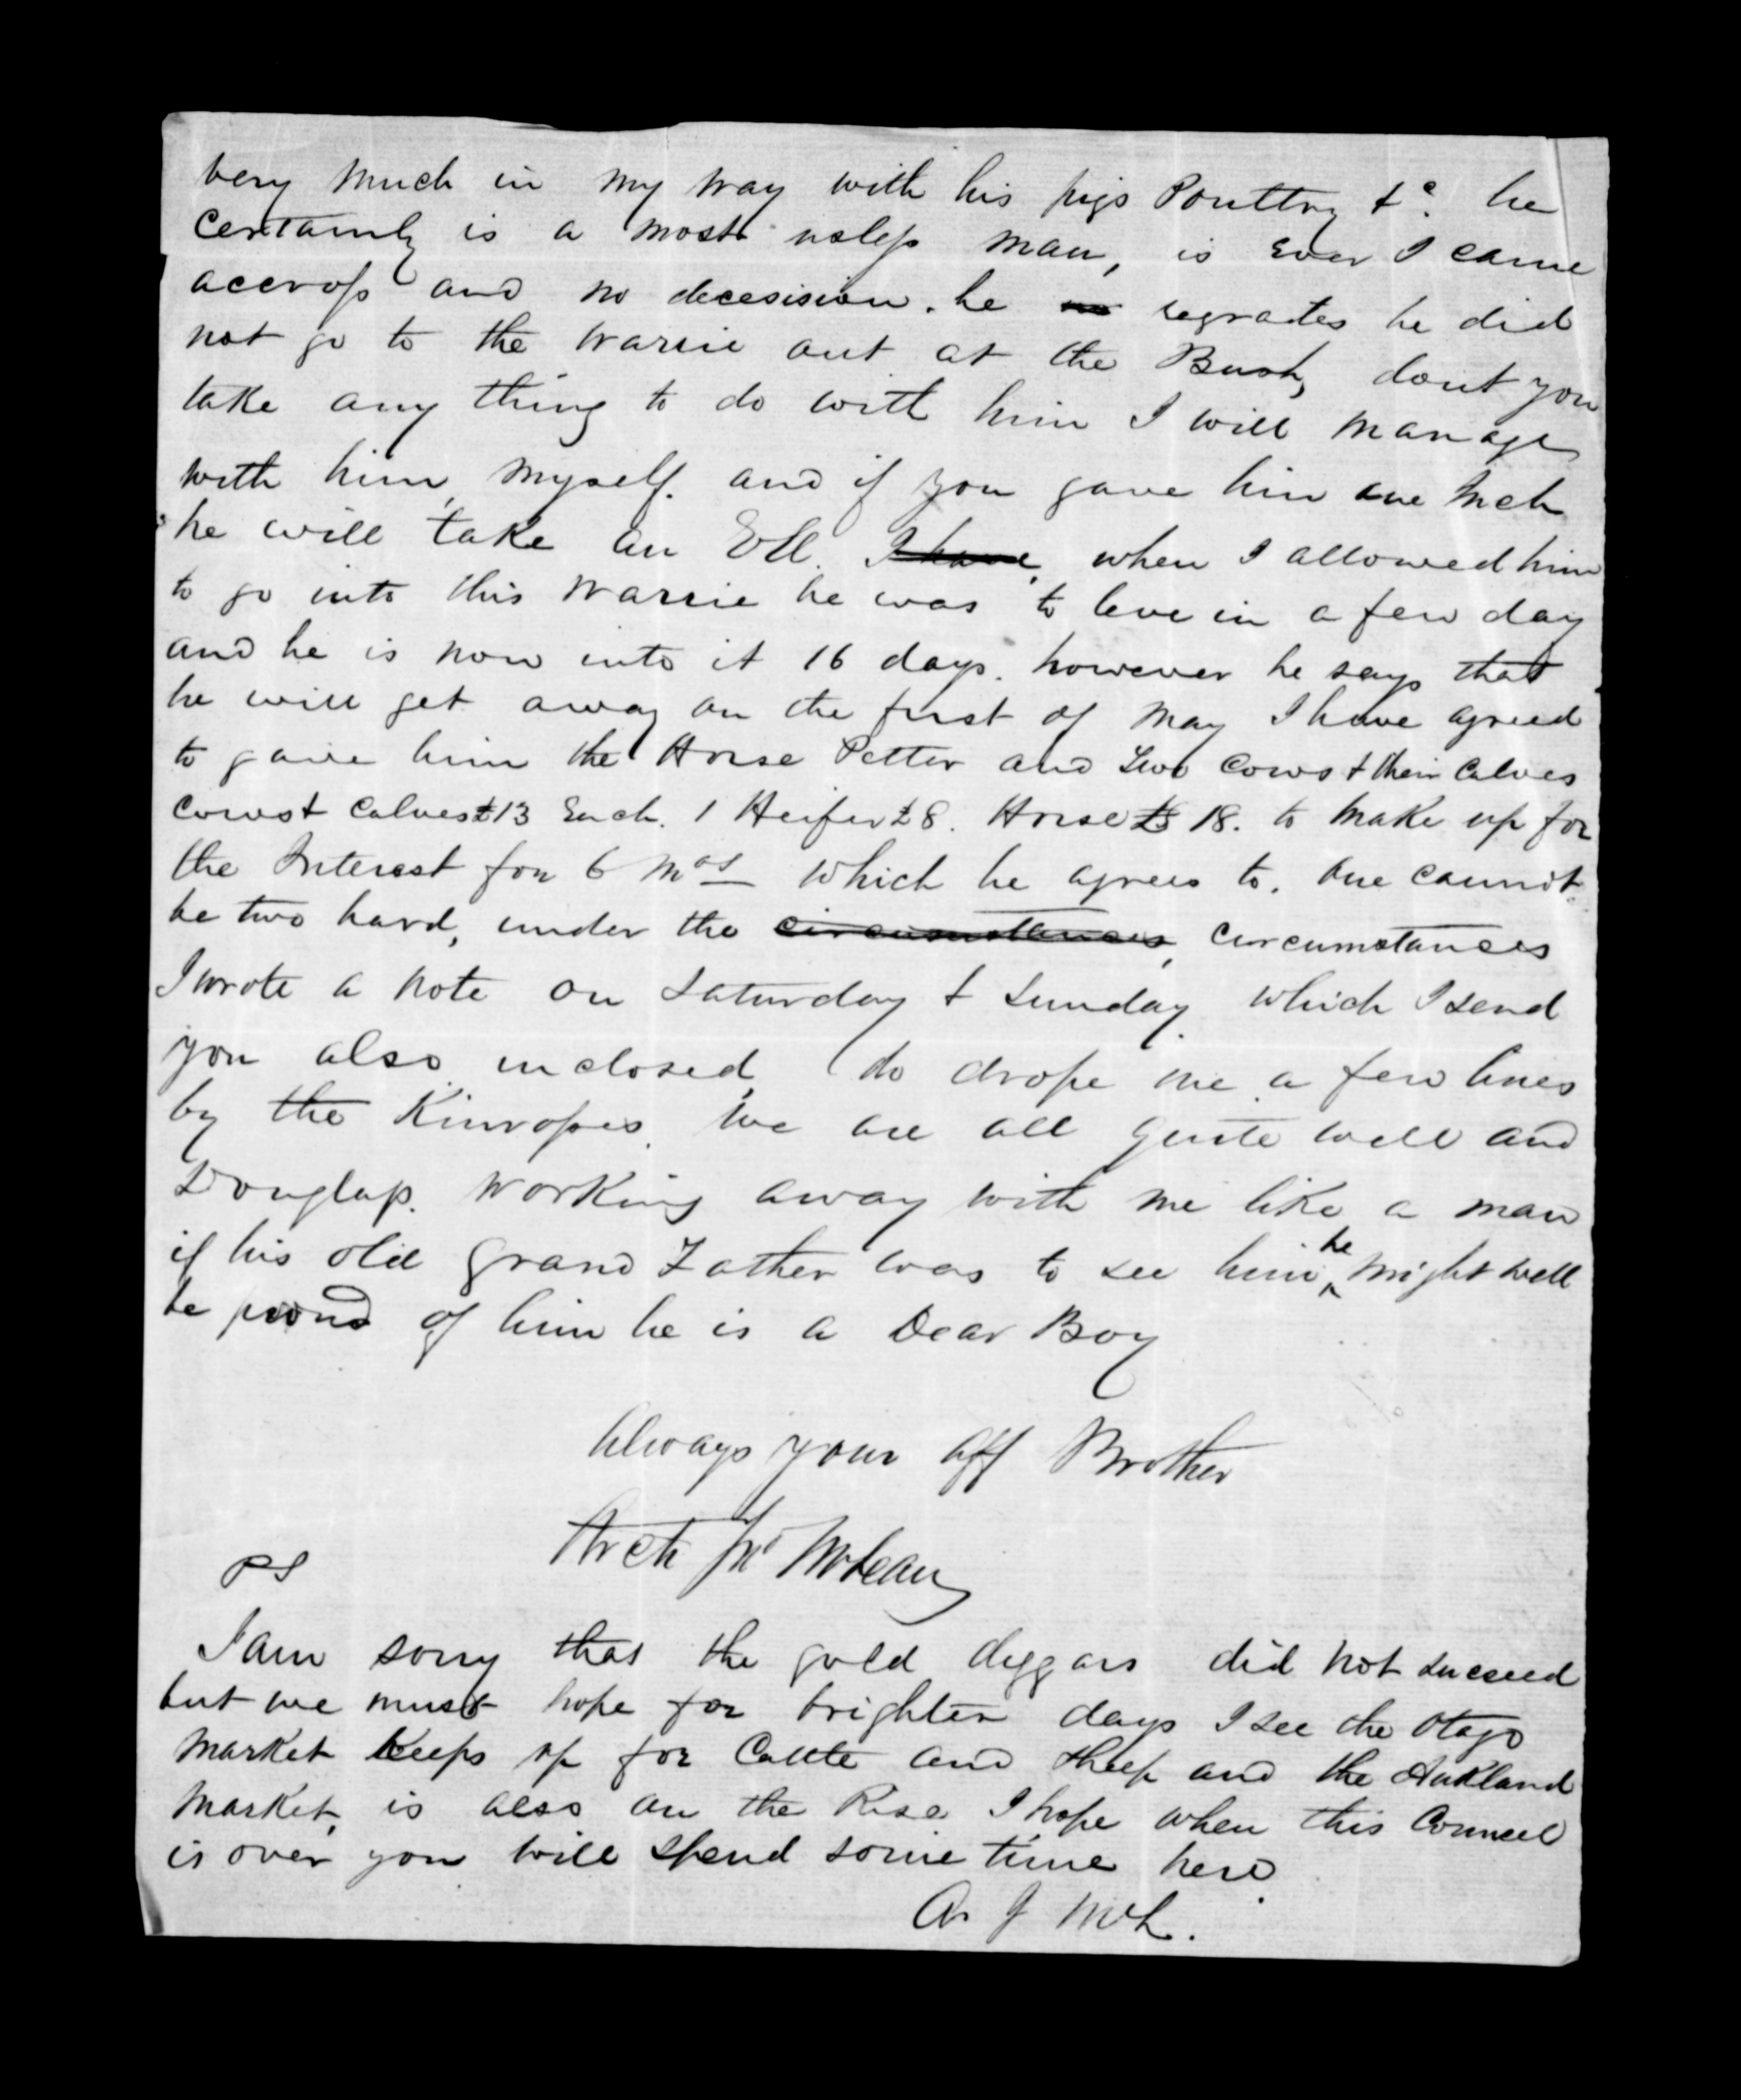 very much in my way with his pigs Poultry &c. he
certainly is a most usless man, is ever I came
accross and no decesision. he regrates he did
not go to the warrie out at the Bush, dont you
take any thing to do with him I will manage
with him myself. and if you gave him one Inch
he will take an Ell. I have, when I allowed him
to go into this warrie he was to leve in a few day
and he is now into it 16 days. however he says that
he will get away on the first of May I have agreed
to gave him the Horse Petter and two cows & their Calves
cows & Calves £13 Each. 1 Heifer £8. Horse £ 18. to make up for
the Interest for 6 mos which he agrees to. one cannot
be two hard, under the circumstances, circumstances
I wrote a note on Saturday & Sunday which I send
you also inclosed, do drope me a few lines
by the Kinrosses. We are all quite well and
Douglass. working away with me like a man
if his old Grand Father was to see him he might well
be proud of him he is a Dear Boy
Always your aff Brother
Arch Jn McLean
PS
I am sorry that the gold diggars did not succeed
but we must hope for brighter days I see the Otago
market keeps up for Cattle and sheep and the Aukland
market, is also on the Rise I hope when this Council
is over you will spend some time here.
Ar J McL.